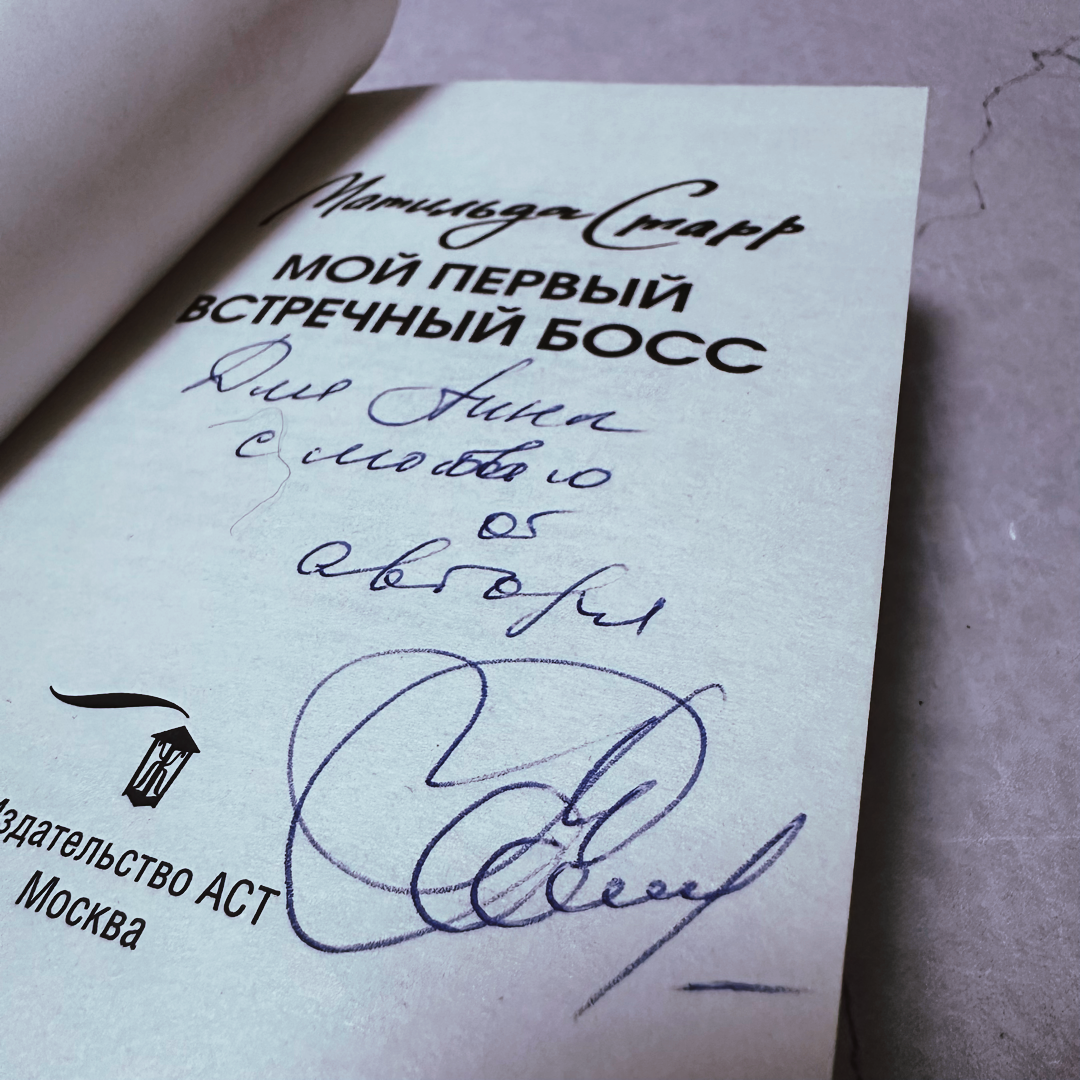 Матильда Старр
МОЙ ПЕРВЫЙ
ВСТРЕЧНЫЙ БОСС
Для Анны
с любовью
от
автора
Ж
Издательство АСТ
Москва